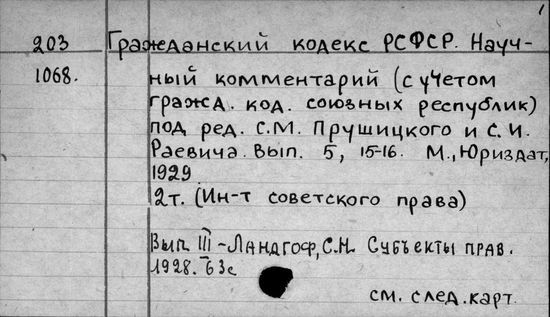 1
203 Гражданский кодекс РСФСР. Науч-
1068. ный комментарий (с учетом
гражд. код. союзных республик)
под ред. С.М. Прушицкого и С.И.
Раевича. Вып. 5, 15-16. М., Юриздат,
1929
2т. (Ин-т советского права)
Вып. III - Ландгоф, С.Н. Субъекты прав.
1928. 63с
см. след. карт.